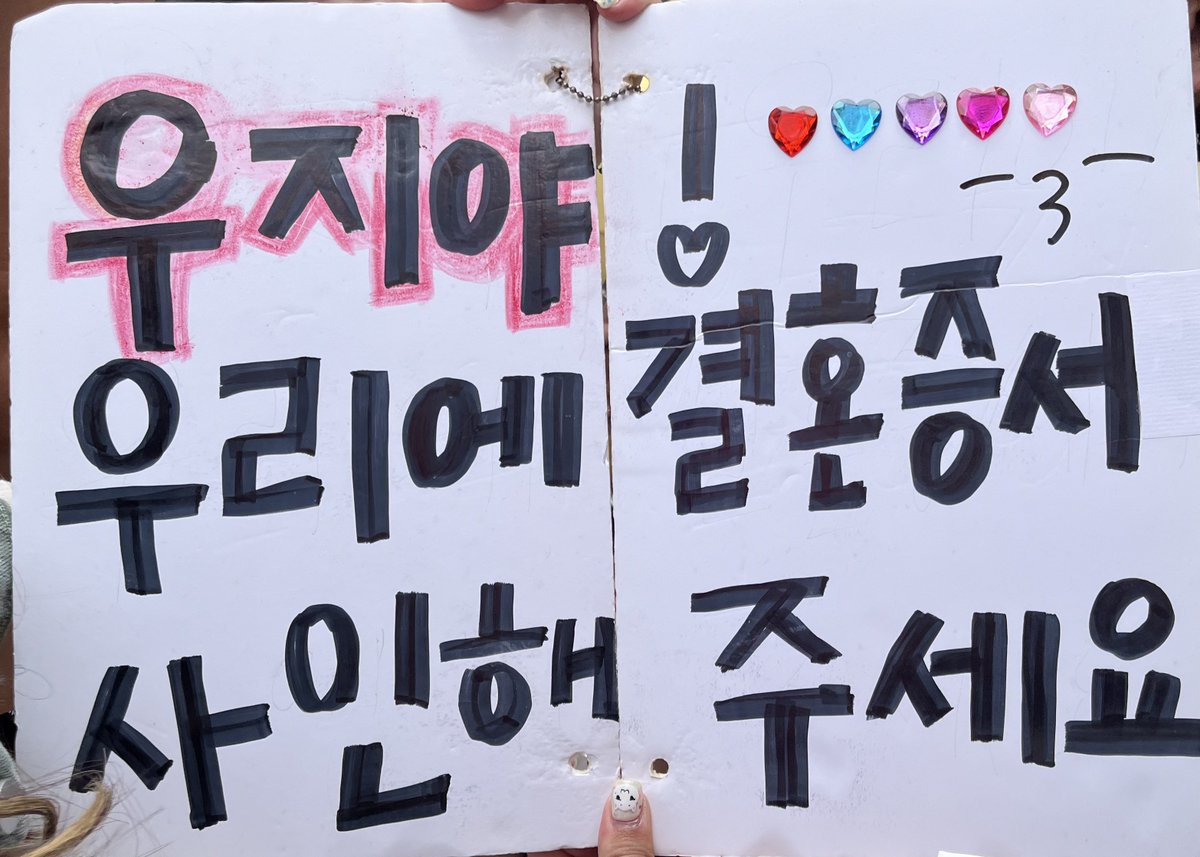 우지야! ㅡ3ㅡ
우리에 결혼증서
사인해 주세요